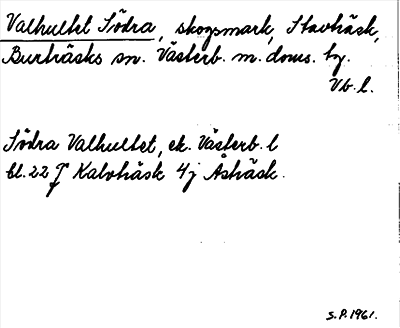 Valhultet Södra, skogsmark, Stavträsk,
Burträsks sn. Västerb. m. doms. by.
Vb. l.
Södra Valhultet, ek. Västerb. l
bl. 22 J Kalvträsk 4j Åsträsk.
S.P. 1961.